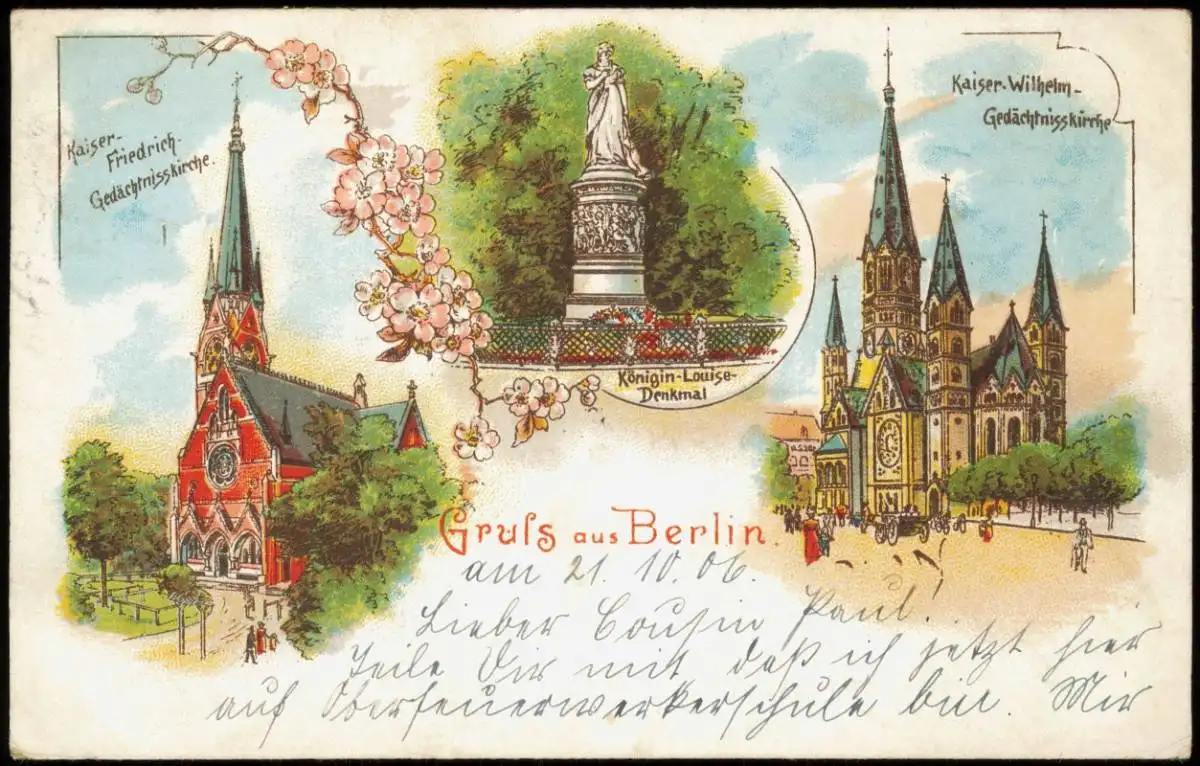 Kaiser-
Friedrich-
Gedächtnisskirche.
Königin-Louise-
Denkmal
Kaiser-Wilhelm-
Gedächtnisskirche
Gruſs aus Berlin.
am 21. 10. 06.
Lieber Cousin Paul!
Teile Dir mit daß ich jetzt hier
auf Oberfeuerwerkerschule bin. Mir